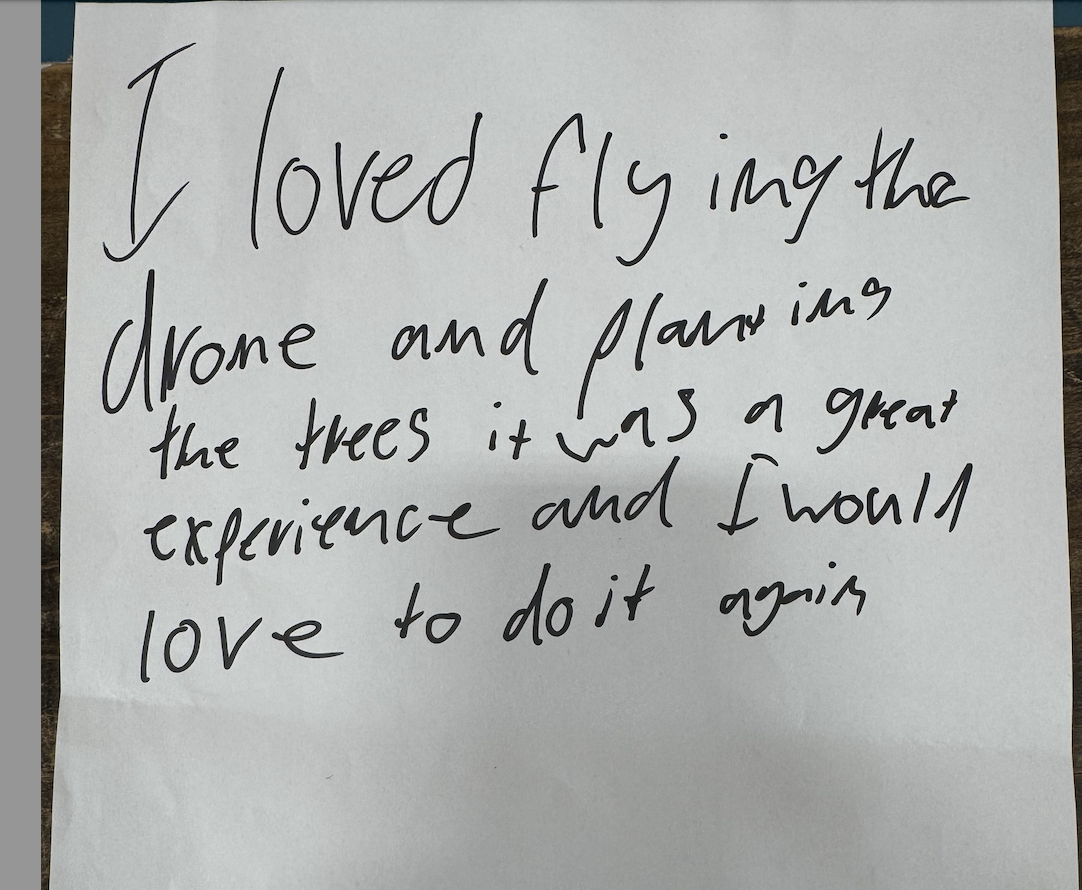 I loved flying the
drone and planting
the trees it was a great
experience and I would
love to do it again